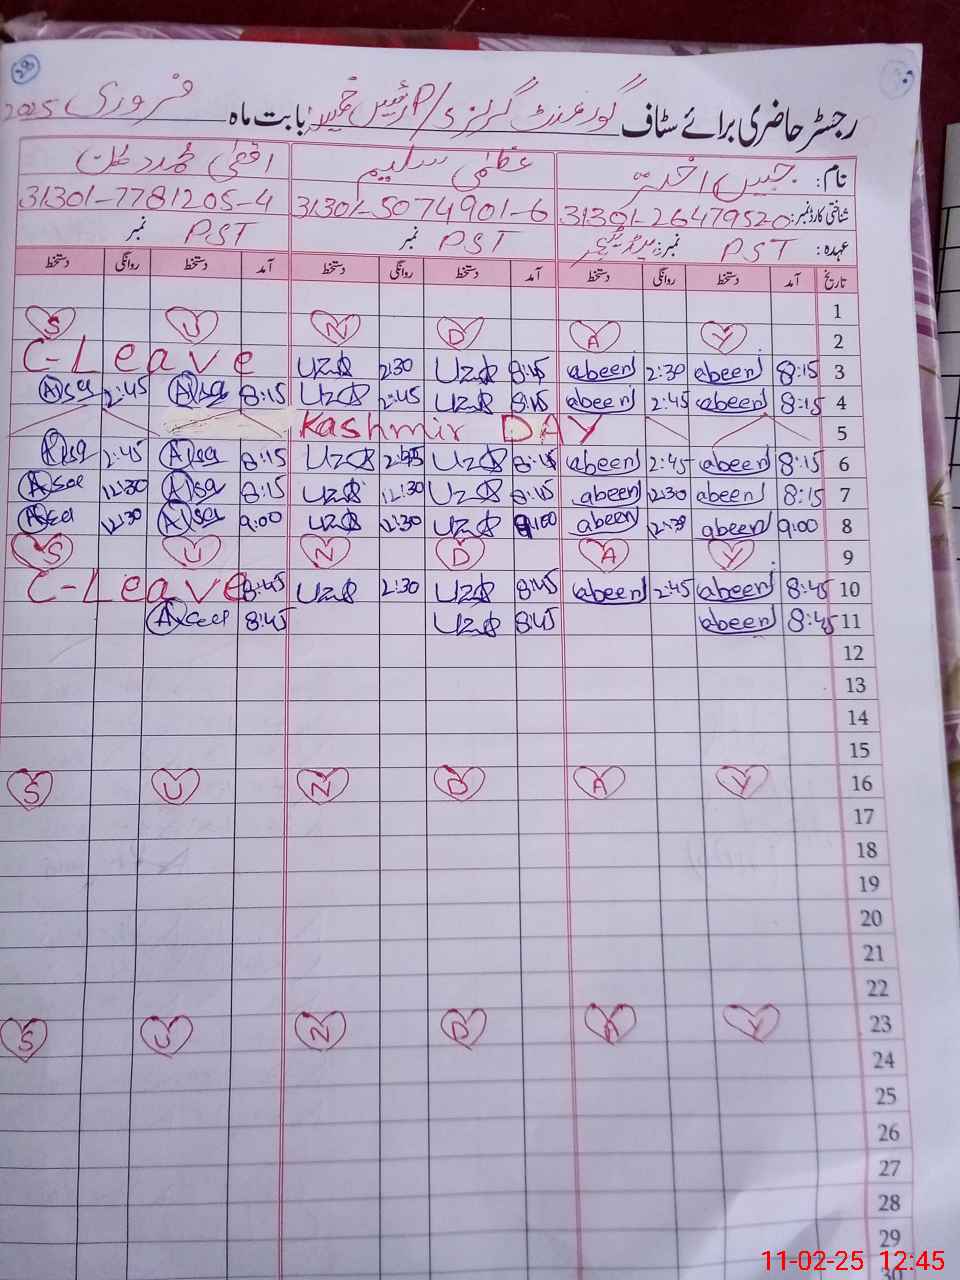 58
رجسٹر حاضری برائے سٹاف گورنمنٹ گرلز بابت ماہ فروری 2025
نام: جبیں اختر عظمٰی سلیم اقصٰی
شناختی کارڈ نمبر: 31301-26479520 31301-5074901-6 31301-7781205-4
عہدہ: PST نمبر: PST نمبر PST نمبر
تاریخ آمد دستخط روانگی دستخط آمد دستخط روانگی دستخط آمد دستخط روانگی دستخط
1
S U N D A Y 2
C-Leave UZB 2:30 UZB 8:15 abeen 2:30 abeen 8:15 3
2:45 8:15 UZB 2:45 UZB 8:15 abeen 2:45 abeen 8:15 4
Kashmir DAY 5
2:45 8:15 UZB 2:45 UZB 8:15 abeen 2:45 abeen 8:15 6
12:30 8:15 UZB 12:30 UZB 8:15 abeen 12:30 abeen 8:15 7
12:30 9:00 UZB 12:30 UZB 9:00 abeen 12:30 abeen 9:00 8
S U N D A Y 9
C-Leave 8:45 UZB 2:30 UZB 8:45 abeen 2:45 abeen 8:45 10
8:45 UZB 8:45 abeen 8:45 11
12
13
14
15
S U N D A Y 16
17
18
19
20
21
22
S U N D A Y 23
24
25
26
27
28
29
30
11-02-25 12:45